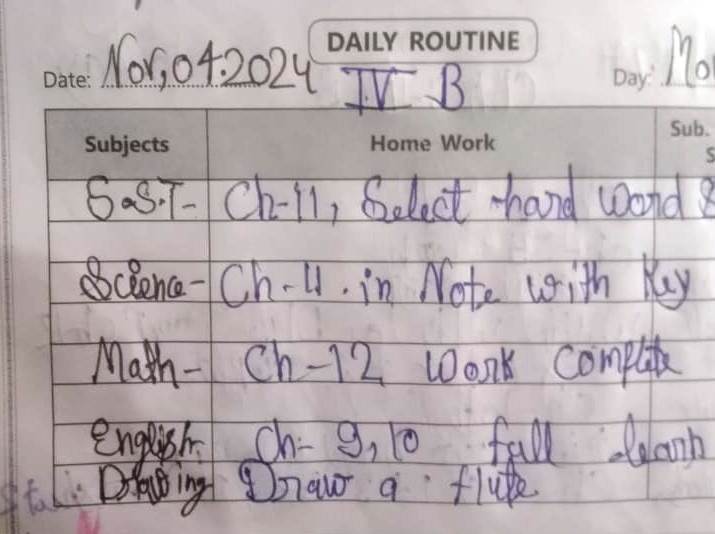 DAILY ROUTINE
Date: Nov, 04.2024 Day: Mo
IV B
Subjects Home Work Sub.
S.S.T- Ch-11, Select hard word &
Science- Ch-11. in Note with Key
Math- Ch-12 work complete
English- Ch- 9,10 full learn
Drawing Draw a flute